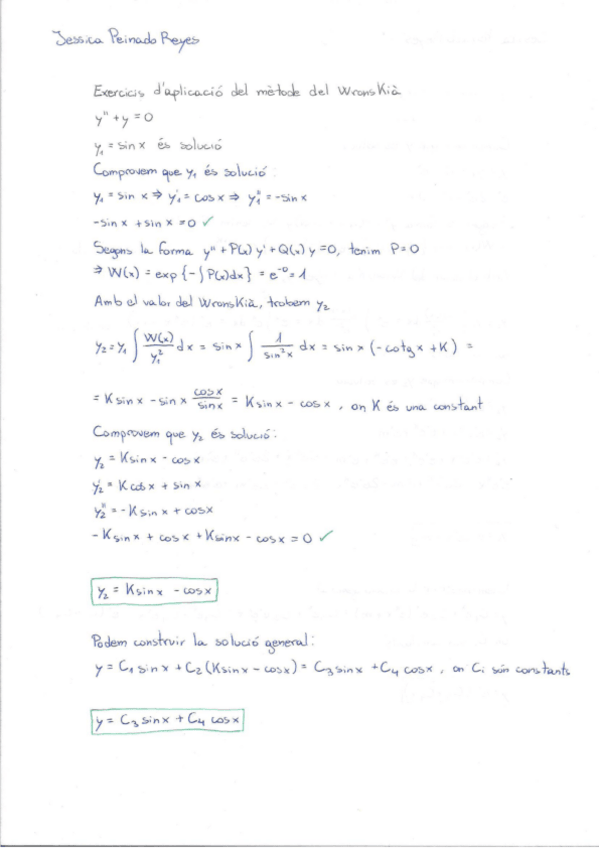 Jessica Peinado Reyes
Exercicis d'aplicació del mètode del Wronskià
y" + y = 0
y₁ = sin x és solució
Comprovem que y₁ és solució:
y₁ = sin x ⇒ y₁' = cos x ⇒ y₁" = -sin x
-sin x + sin x = 0 ✓
Segons la forma y" + P(x) y' + Q(x) y = 0, tenim P = 0
⇒ W(x) = exp {-∫P(x)dx} = e⁻⁰ = 1
Amb el valor del Wronskià, trobem y₂
y₂ = y₁ ∫ W(x)/y₁² dx = sin x ∫ 1/sin²x dx = sin x (-cotg x + K) =
= K sin x - sin x cos x/sin x = K sin x - cos x, on K és una constant
Comprovem que y₂ és solució:
y₂ = K sin x - cos x
y₂' = K cos x + sin x
y₂" = -K sin x + cos x
-K sin x + cos x + K sin x - cos x = 0 ✓
y₂ = K sin x - cos x
Podem construir la solució general:
y = C₁ sin x + C₂ (K sin x - cos x) = C₃ sin x + C₄ cos x, on Cᵢ són constants
y = C₃ sin x + C₄ cos x